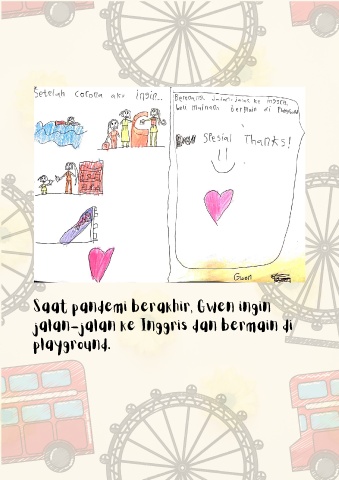 Setelah corona aku ingin...
Berenang, Jalan-jalan ke inggris,
beli mainan, bermain di Playground
Spesial Thanks!
Gwen
Saat pandemi berakhir, Gwen ingin
jalan-jalan ke Inggris dan bermain di
playground.